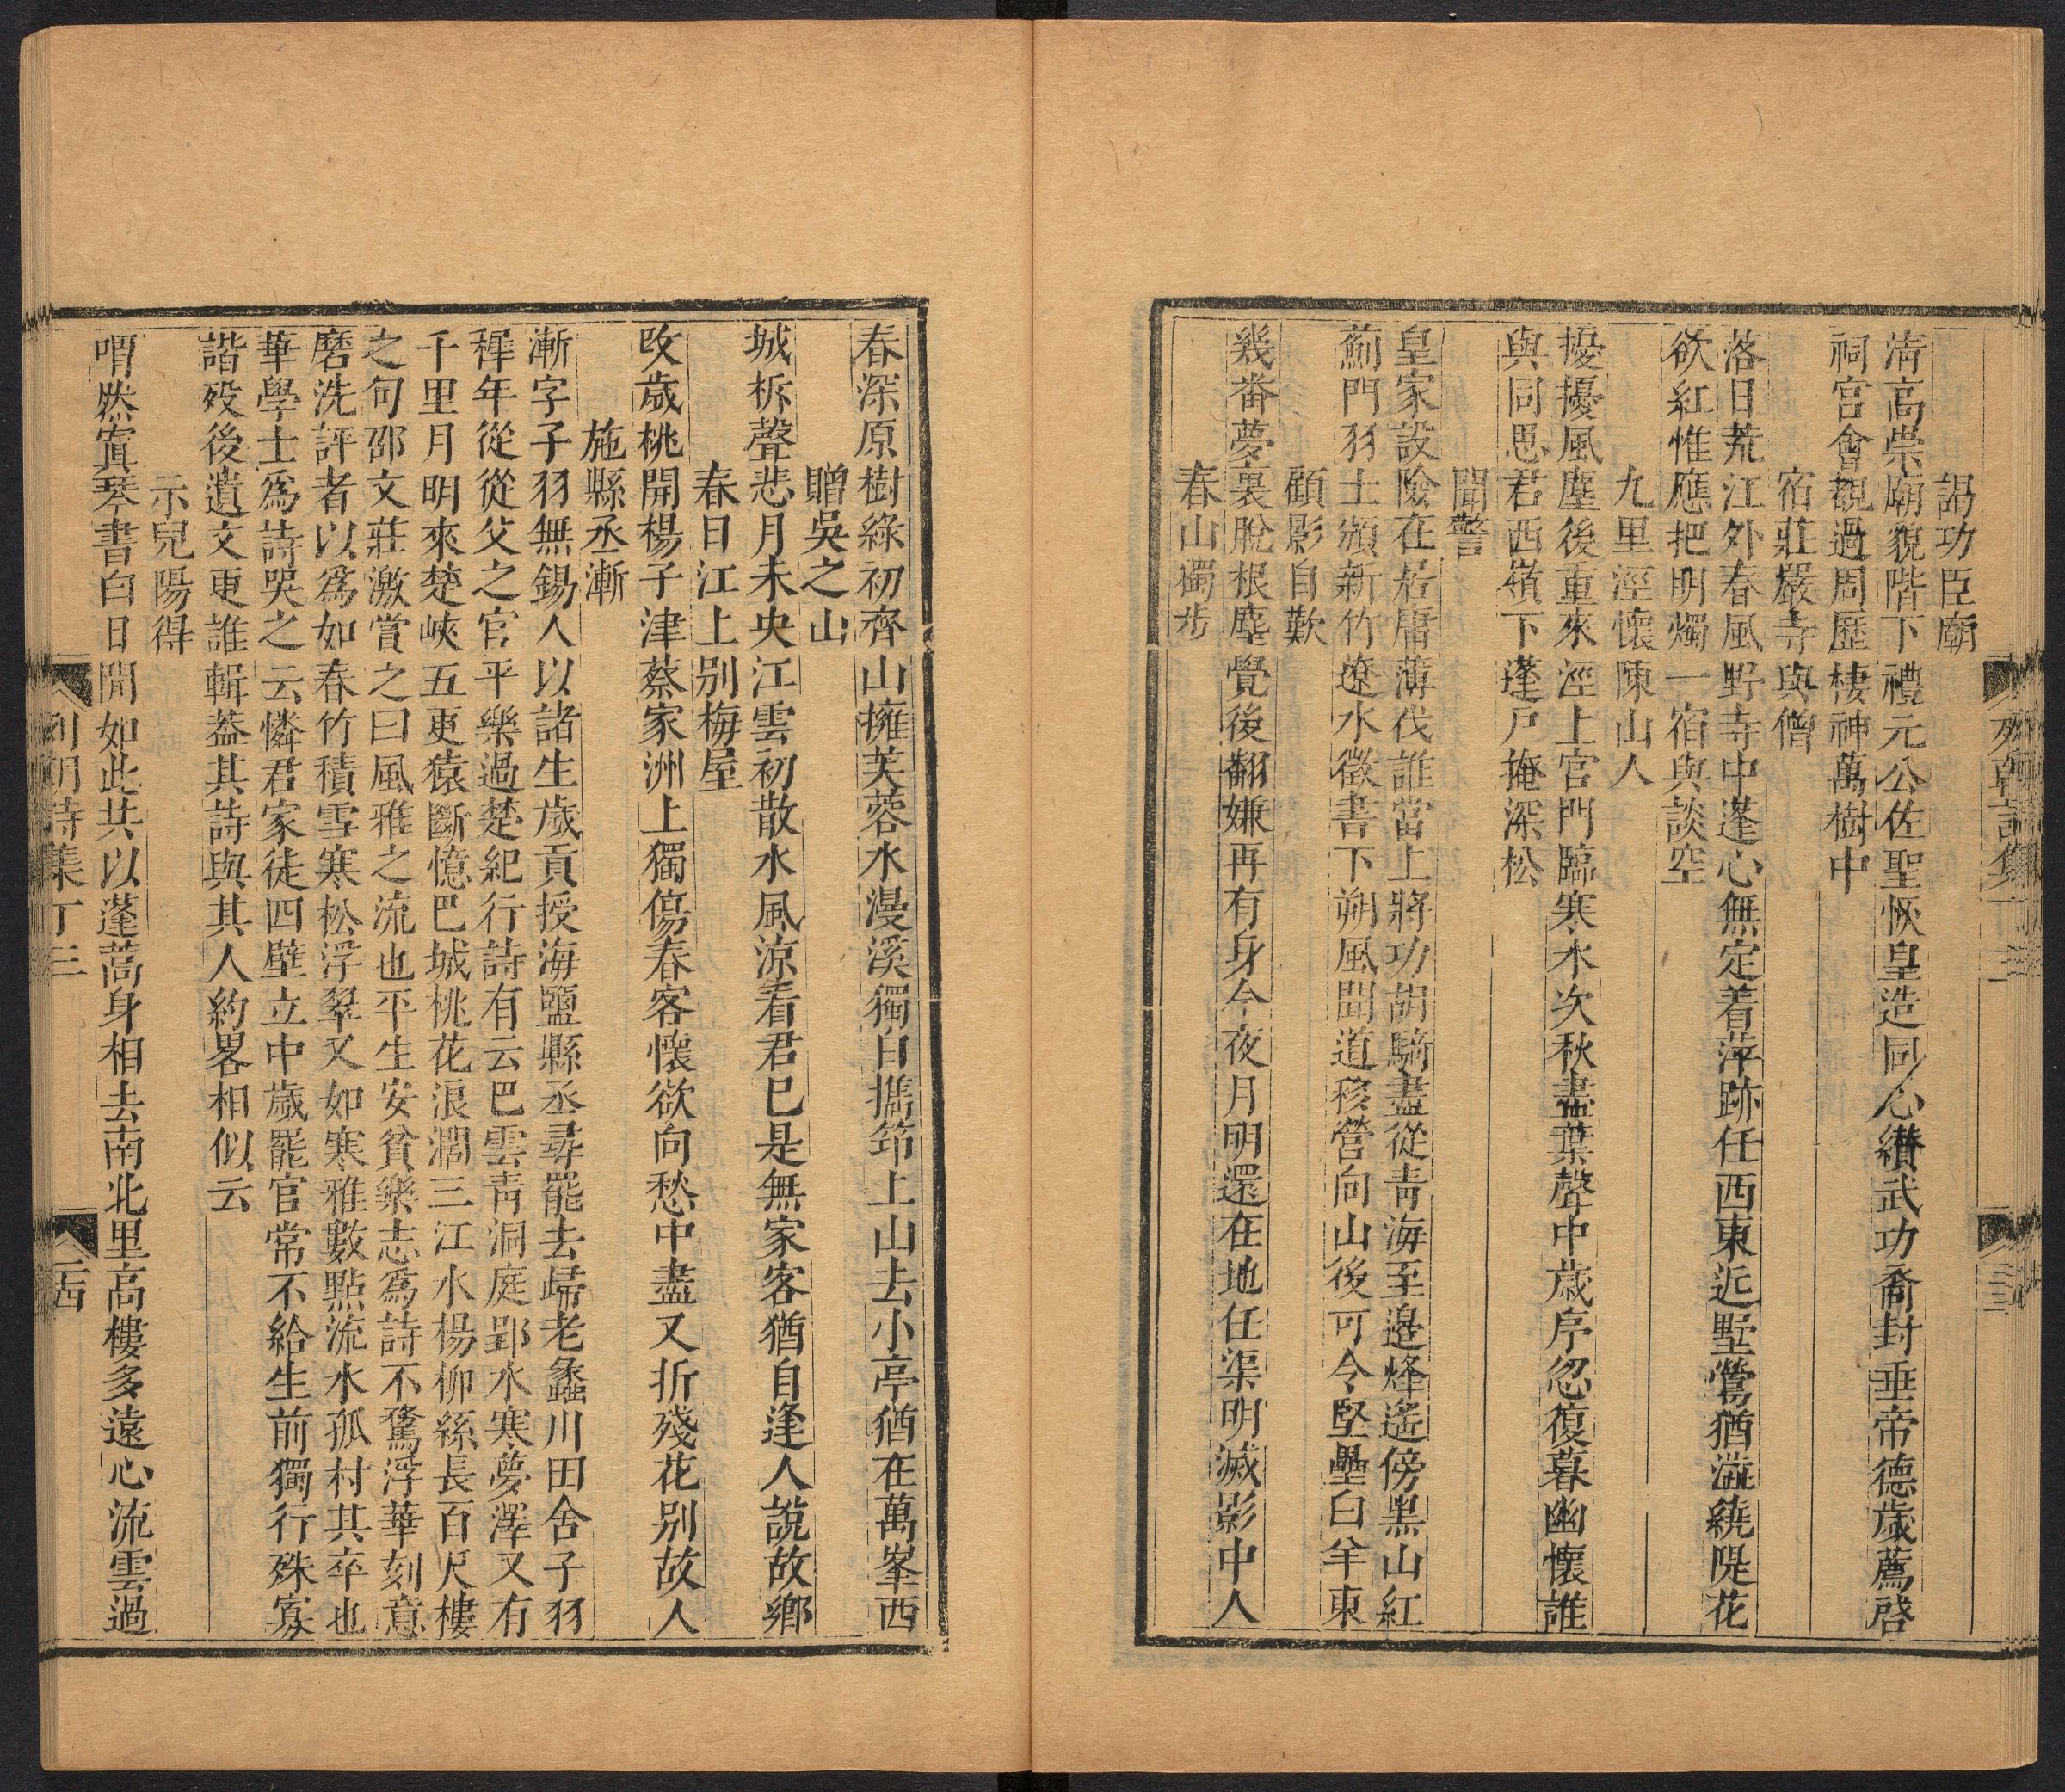 列朝詩集丁三
謁功臣廟
清高崇廟貌階下禮元公佐聖恢皇造同心纘武功裔封垂帝德歲薦啓
祠宮會覩過周歷棲神萬樹中
宿莊嚴寺與僧
落日荒江外春風野寺中蓬心無定着萍跡任西東近墅鶯猶澁繞隄花
欲紅惟應把明燭一宿與談空
九里涇懷陳山人
擾擾風塵後重來涇上官門臨寒水次秋盡葉聲中歲序忽復暮幽懷誰
與同思君西嶺下蓬戸掩深松
聞警
皇家設險在居庸薄伐誰當上將功胡騎盡從青海至邉烽遙傍黑山紅
薊門羽士頻新竹遼水徵書下朔風聞道移營向山後可令堅壘白羊東
顧影自歎
幾畨夢裏脫根塵覺後翻嫌再有身今夜月明還在地任渠明滅影中人
春山獨步
春深原樹綠初齊山擁芙蓉水漫溪獨自攜筇上山去小亭猶在萬峯西
贈吳之山
城柝聲悲月未央江雲初散水風涼看君巳是無家客猶自逢人說故鄉
春日江上别梅屋
改歲桃開楊子津蔡家洲上獨傷春客懷欲向愁中盡又折殘花别故人
施縣丞漸
漸字子羽無錫人以諸生歲貢授海鹽縣丞尋罷去歸老蠡川田舍子羽
穉年從從父之官平樂過楚紀行詩有云巴雲青洞庭郢水寒夢澤又有
千里月明來楚峽五更猿斷憶巴城桃花浪濶三江水楊柳絲長百尺樓
之句邵文莊激賞之曰風雅之流也平生安貧樂志爲詩不騖浮華刻意
磨洗評者以爲如春竹積雪寒松浮翠又如寒雅數點流水孤村其卒也
華學士爲詩哭之云憐君家徒四壁立中歲罷官常不給生前獨行殊寡
諧歿後遺文更誰輯葢其詩與其人約畧相似云
示兒陽得
喟然寘琴書白日閒如此共以蓬蒿身相去南北里高樓多遠心流雲過
列朝詩集丁三